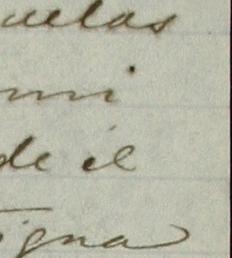 uelas
mi
de él
igna